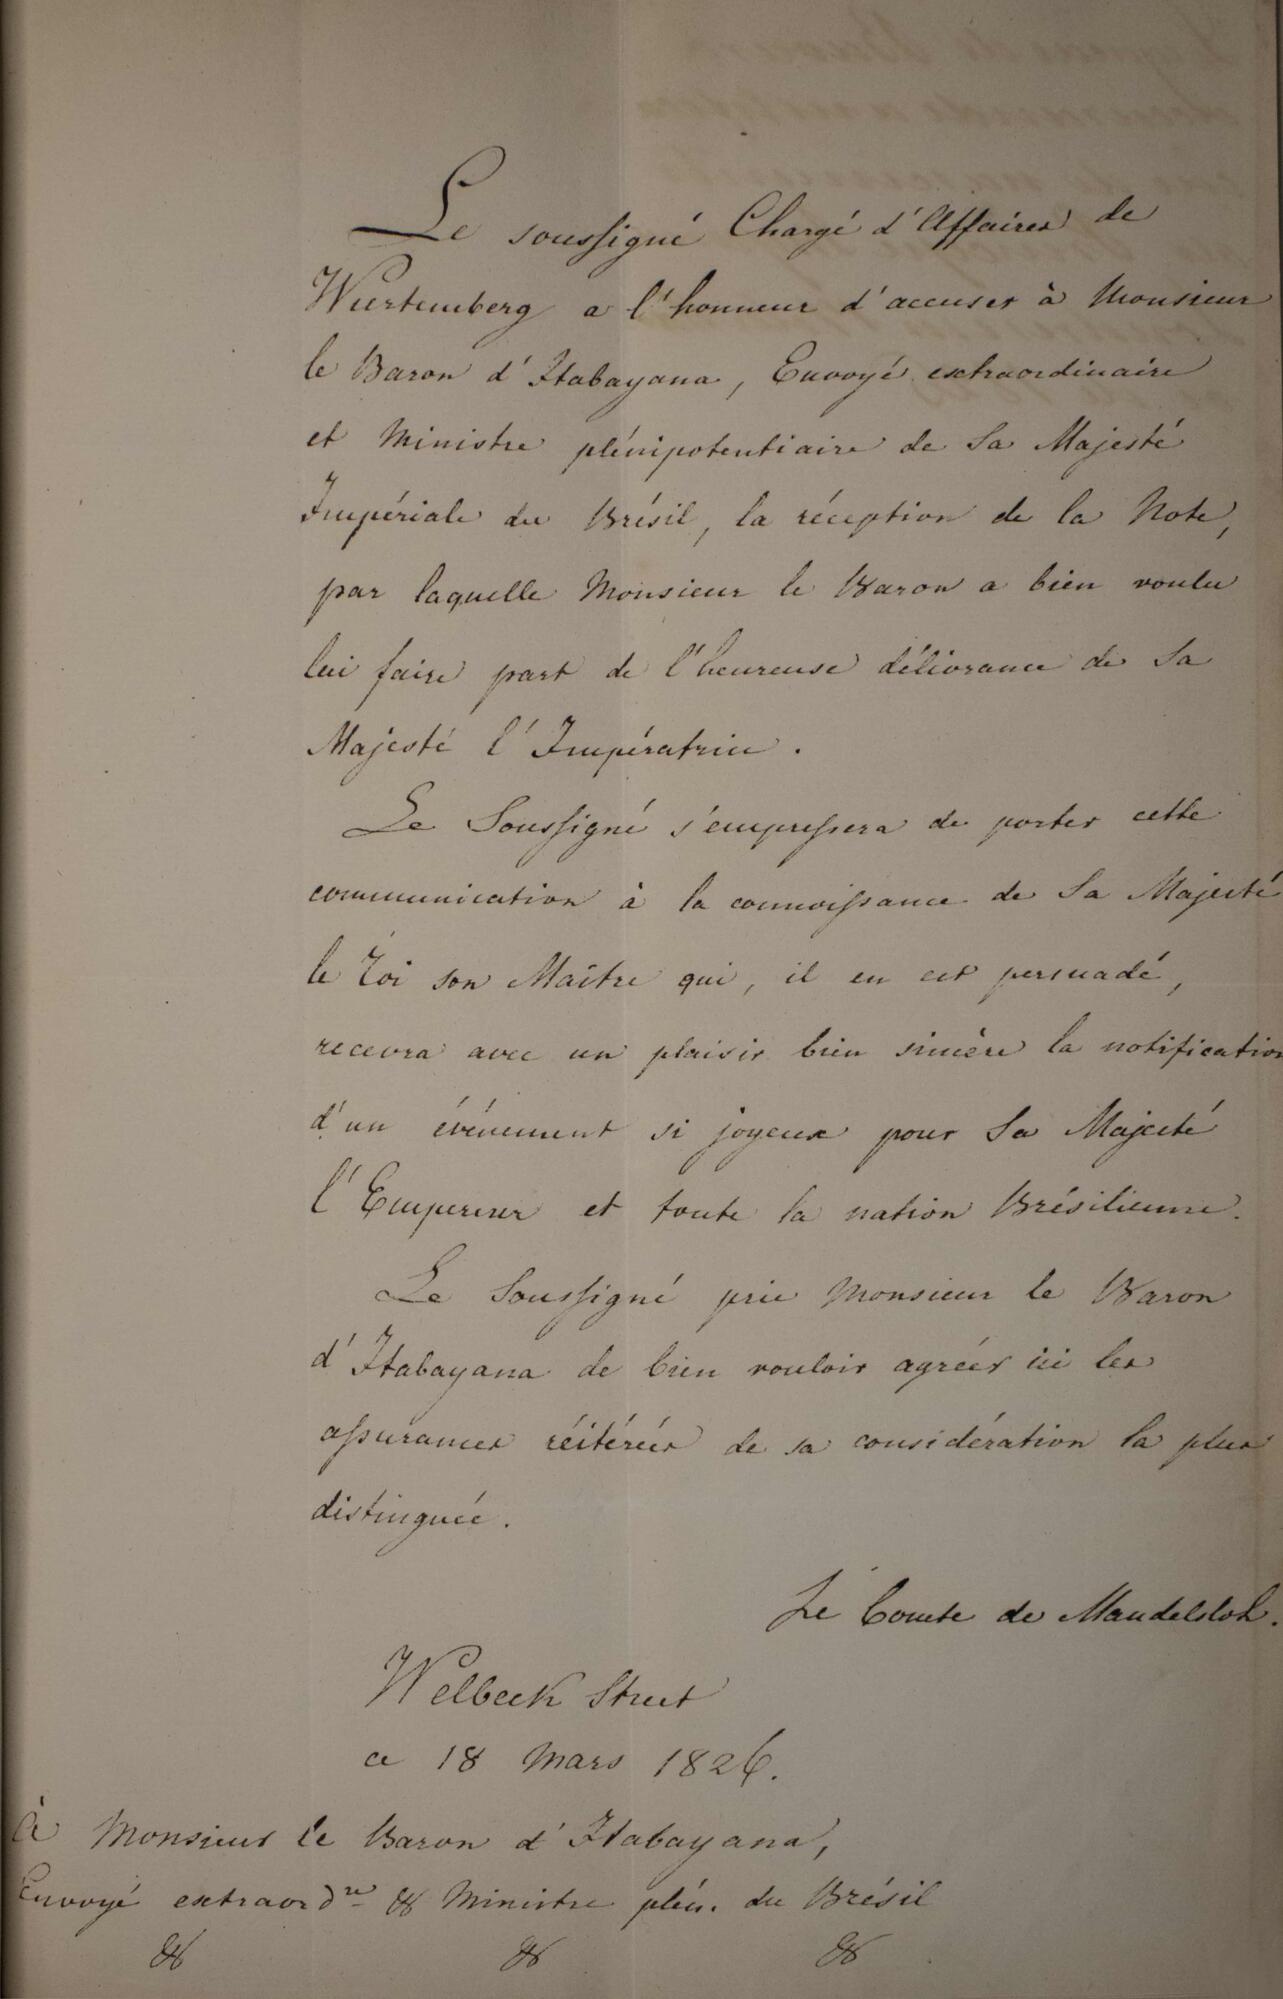 Le soussigné Chargé d'Affaires de
Wurtemberg a l'honneur d'accuser à Monsieur
le Baron d'Itabayana, Envoyé extraordinaire
et Ministre plénipotentiaire de Sa Majesté
Impériale du Brésil, la réception de la Note,
par laquelle Monsieur le Baron a bien voulu
lui faire part de l'heureuse délivrance de Sa
Majesté l'Impératrice.
Le Soussigné s'empressera de porter cette
communication à la connoissance de Sa Majesté
le Roi son Maître qui, il en est persuadé,
recevra avec un plaisir bien sincère la notification
d'un événement si joyeux pour Sa Majesté
l'Empereur et toute la nation Brésilienne.
Le Soussigné prie Monsieur le Baron
d'Itabayana de bien vouloir agréer ici les
assurances réitérées de sa considération la plus
distinguée.
Le Comte de Mandelsloh.
Welbeck Street
ce 18 Mars 1826.
à Monsieur le Baron d'Itabayana,
Envoyé extraordre & Ministre plén. du Brésil
& & &